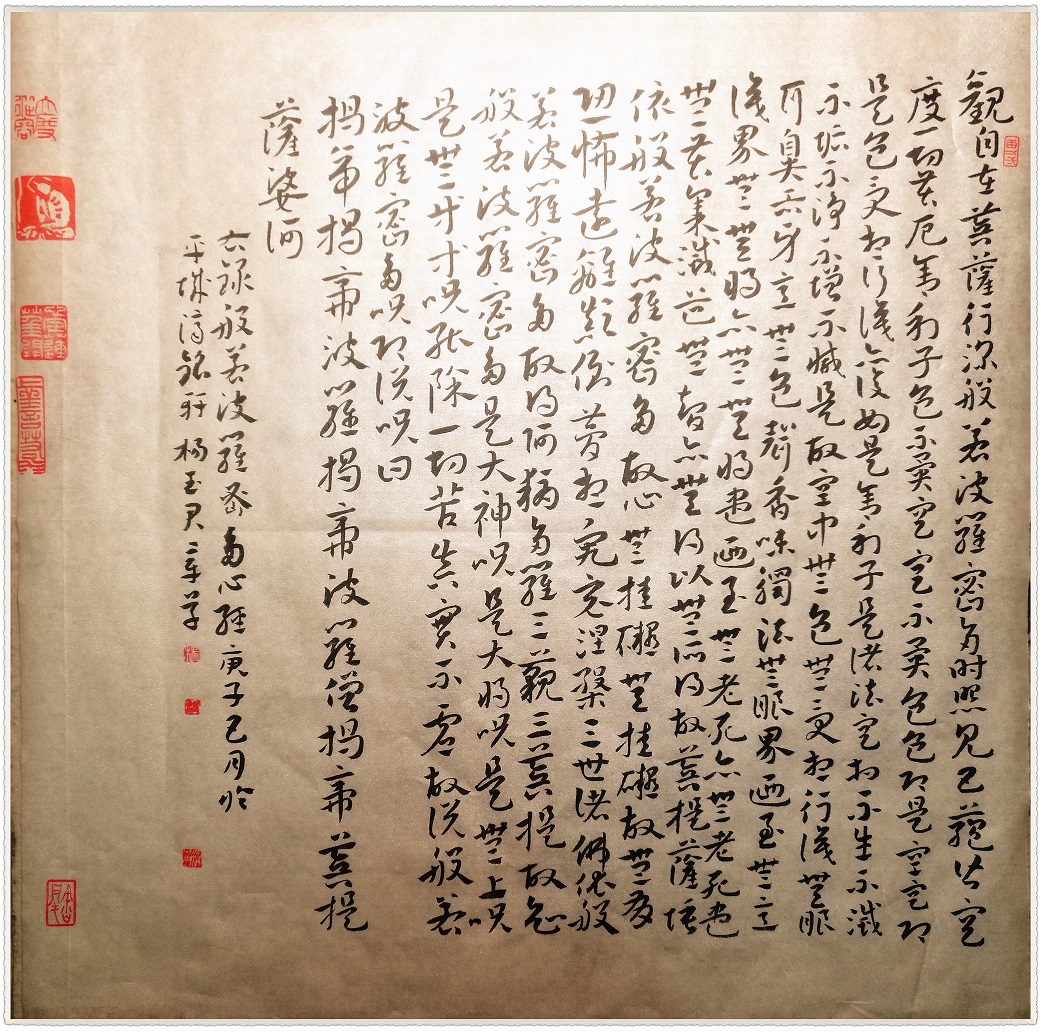 觀自在菩薩行深般若波羅密多時照見五蘊皆空
度一切苦厄舍利子色不異空空不異色色即是空空即
是色受想行識亦復如是舍利子是諸法空相不生不滅
不垢不淨不增不減是故空中無色無受想行識無眼
耳鼻舌身意無色聲香味觸法無眼界迺至無意
識界無無明亦無無明盡迺至無老死亦無老死盡
無苦集滅道無智亦無得以無所得故菩提薩埵
依般若波羅密多故心無挂礙無挂礙故無有
恐怖遠離顛倒夢想究竟涅槃三世諸佛依般
若波羅密多故得阿耨多羅三藐三菩提故知
般若波羅密多是大神呪是大明呪是無上呪
是無等等呪能除一切苦真實不虛故說般若
波羅密多呪即說呪曰
揭帝揭帝波羅揭帝波羅僧揭帝菩提
薩婆訶
右錄般若波羅蜜多心經庚子巳月於
平城 銘軒楊玉君章草